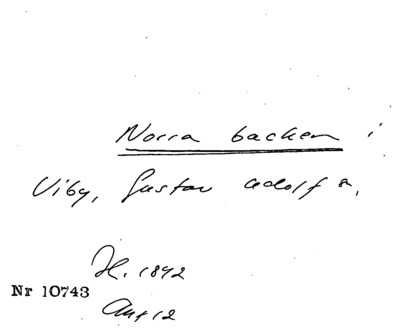 Norra backen i
Viby, Gustav Adolf s.
H. 1892
Nr 10743
Ant 12